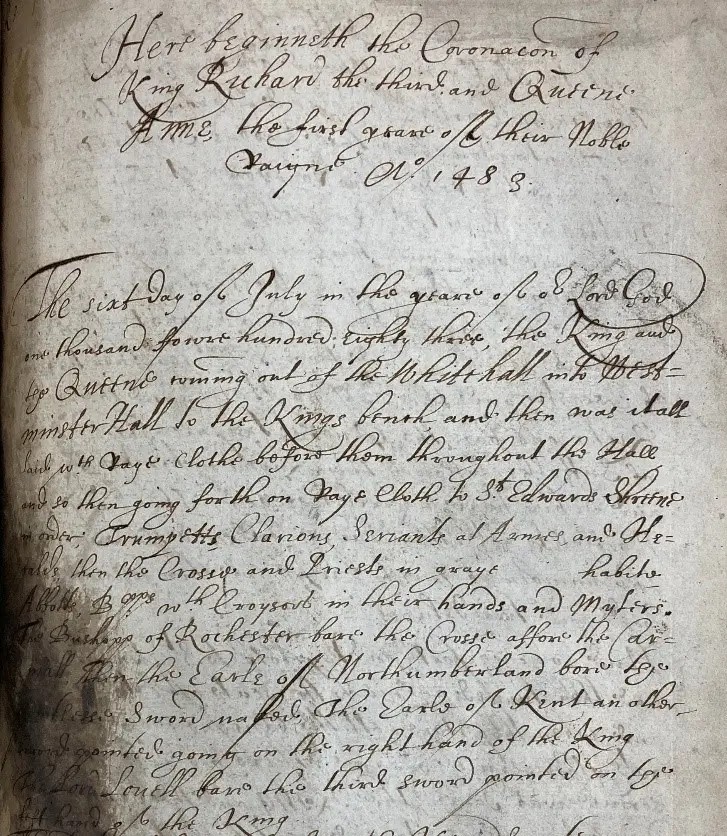 Here beginneth the Coronacon of
King Richard the third and Queene
Anne, the first yeare off their Noble
Raigne Ao. 1483.
The sixt day off July in the yeare off or Lord God
one thousand fowre hundred Eighty three, the King and
the Queene coming out of the White hall into West=
minster Hall to the Kings bench and then was it all
laid wth Raye Clothe before them throughout the Hall
and so then going forth on Raye Cloth to St. Edwards Shreene
in order, Trumpetts, Clarions, Seriants at Armes, and He=
ralds then the Crosse and Priests in graye habite
Abbotts Bpps wth Croysors in their hands and Myters.
The Bushopp of Rochester bare the Crosse affore the Car=
then the Earle off Northumberland bore the
Sword naked, The Earle off Kent an other
sword pointed going on the right hand of the King
The Lord Lovell bare the third sword pointed on the
left hand off the King